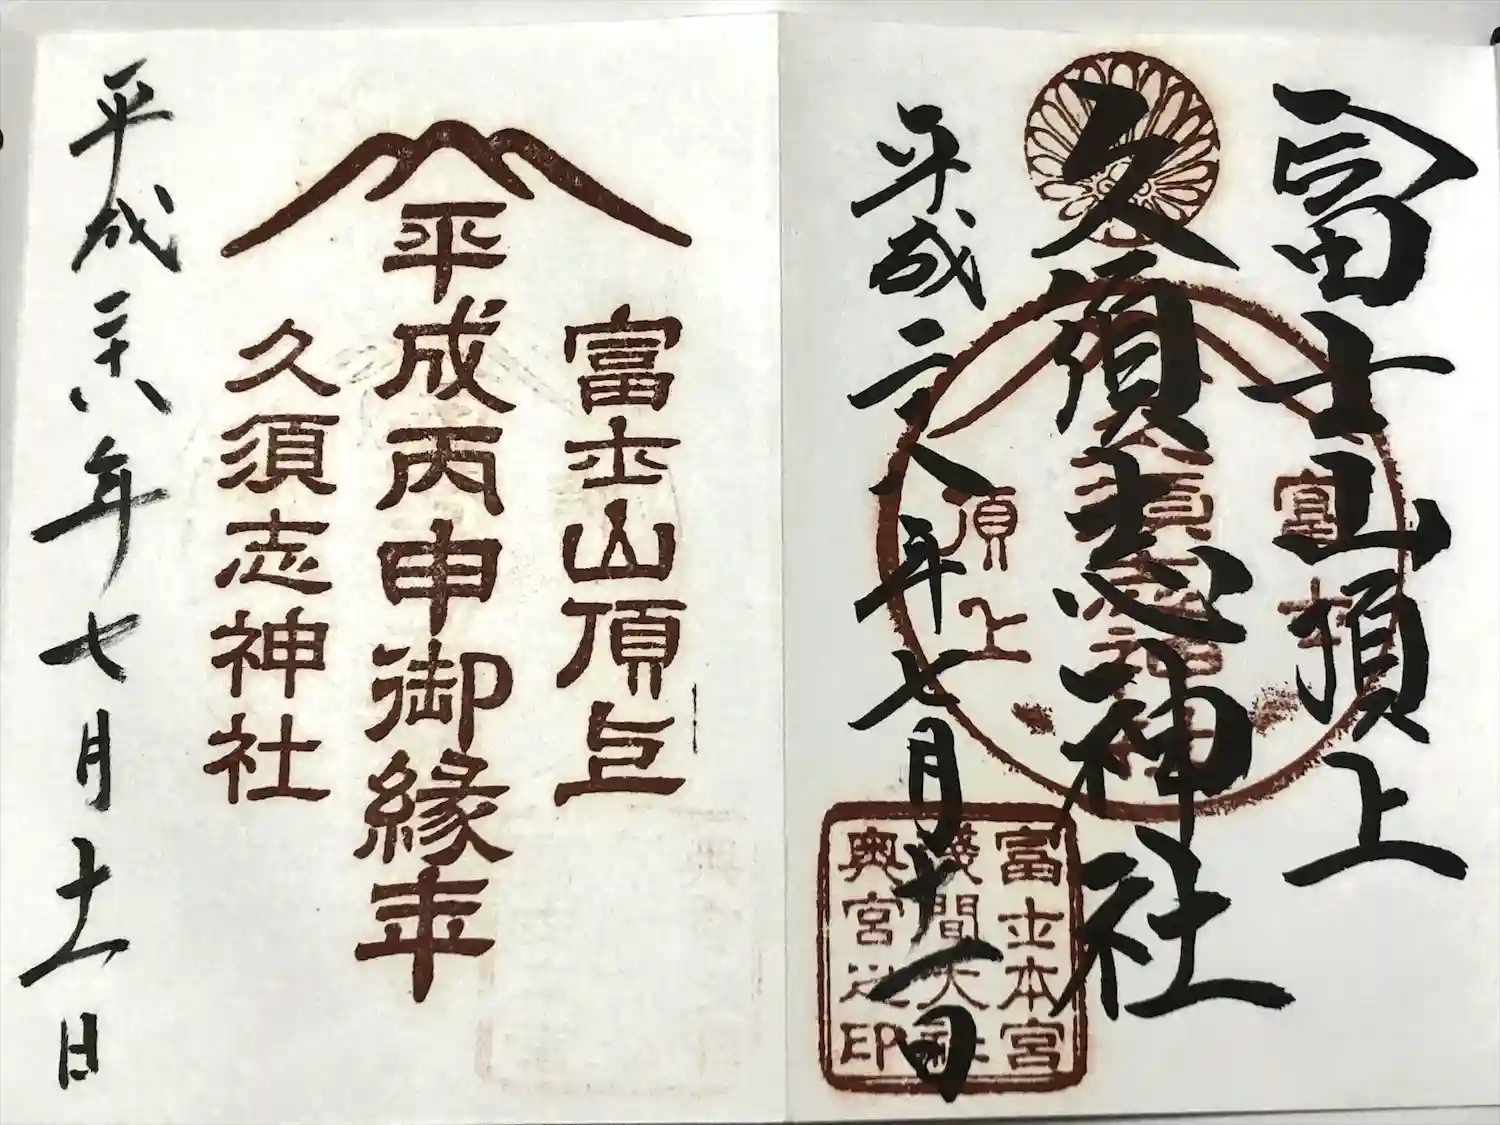 冨士山頂上
久須志神社
平成二八年七月十一日
富士
頂上
富士本宮
淺間大社
奥宮之印
富士山頂上
平成丙申御縁年
久須志神社
平成二十八年七月十一日